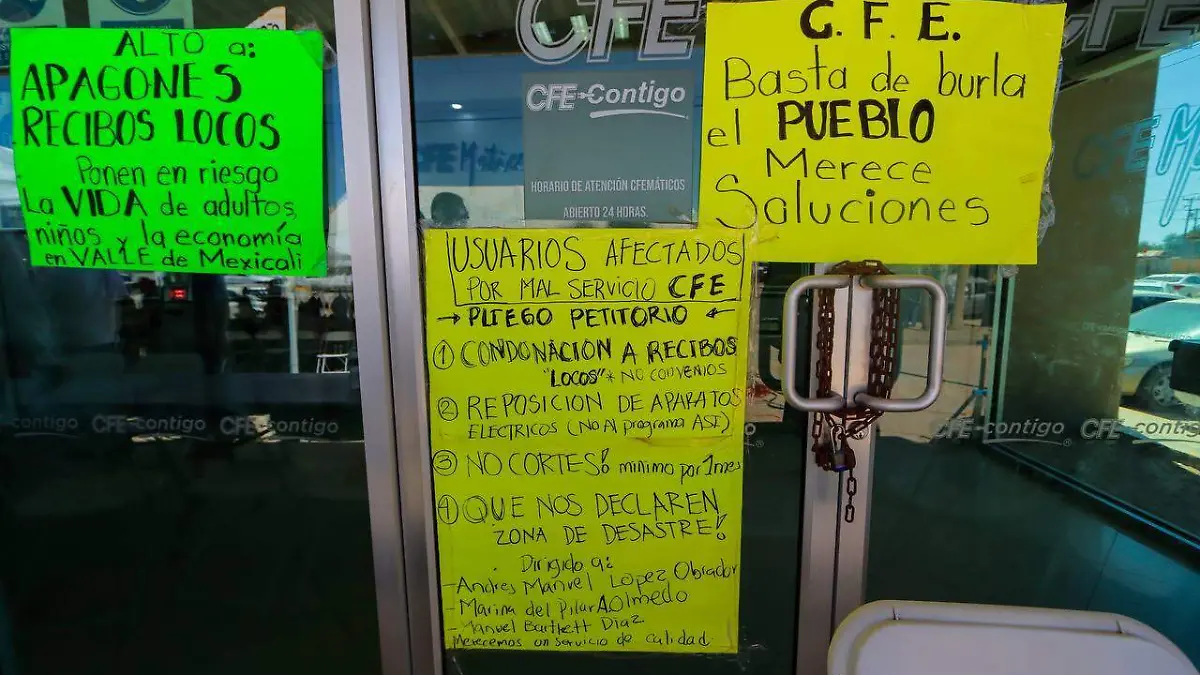 ALTO a:
APAGONES
RECIBOS LOCOS
Ponen en riesgo
La VIDA de adultos,
niños y la economía
en VALLE de Mexicali
CFE
CFE Contigo
HORARIO DE ATENCIÓN CFEMÁTICOS
ABIERTO 24 HORAS.
C.F.E.
Basta de burla
el PUEBLO
Merece
Saluciones
USUARIOS AFECTADOS
POR MAL SERVICIO CFE
→ PLIEGO PETITORIO ←
① CONDONACION A RECIBOS
"LOCOS" * NO CONVENIOS
② REPOSICION DE APARATOS
ELECTRICOS (NO Al programa ASI)
③ NO CORTES! minimo por 1 mes
④ QUE NOS DECLAREN
ZONA DE DESASTRE!
Dirigido a:
- Andres Manuel Lopez Obrador
- Marina del Pilar A Olmedo
- Manuel Bartlett Diaz
Merecemos un servicio de calidad
contigo CFE contigo CFE contigo
CFE contigo CFE contigo